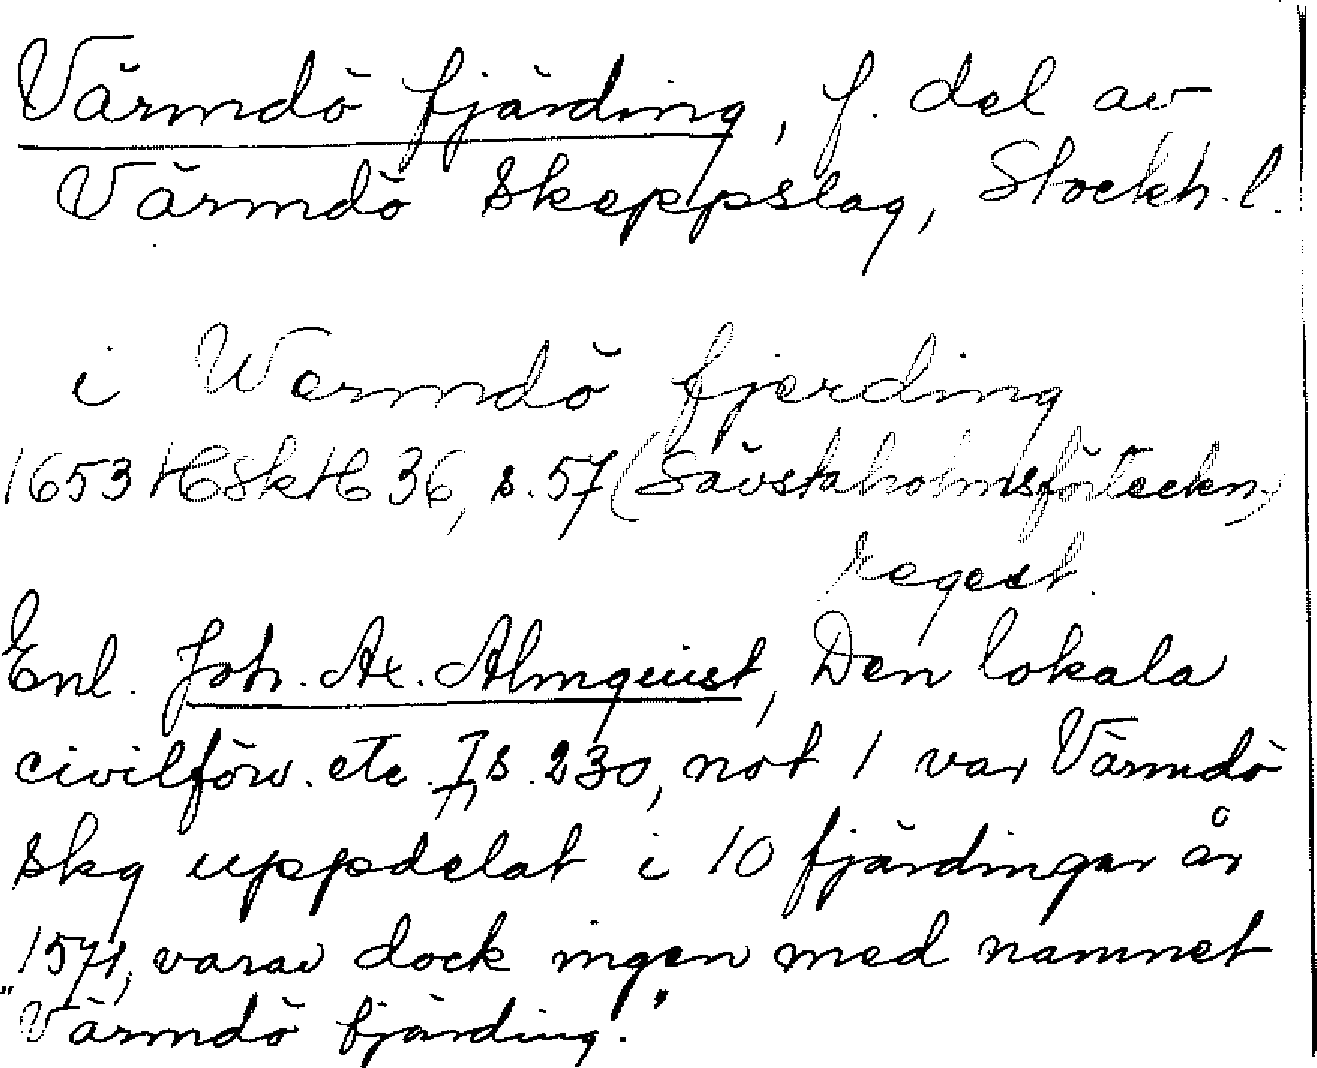 Värmdö fjärding, f. del av
Värmdö skeppslag, Stockh. l.
i Wermdö fjerding
1653 HSkH 36, s. 57 (Sävstaholmsförteckn.)
regest.
Enl. Joh. Ax. Almquist, Den lokala
civilförv. etc. I, s. 230, not 1 var Värmdö
skg uppdelat i 10 fjärdingar år
1571, varav dock ingen med namnet
"Värmdö fjärding."